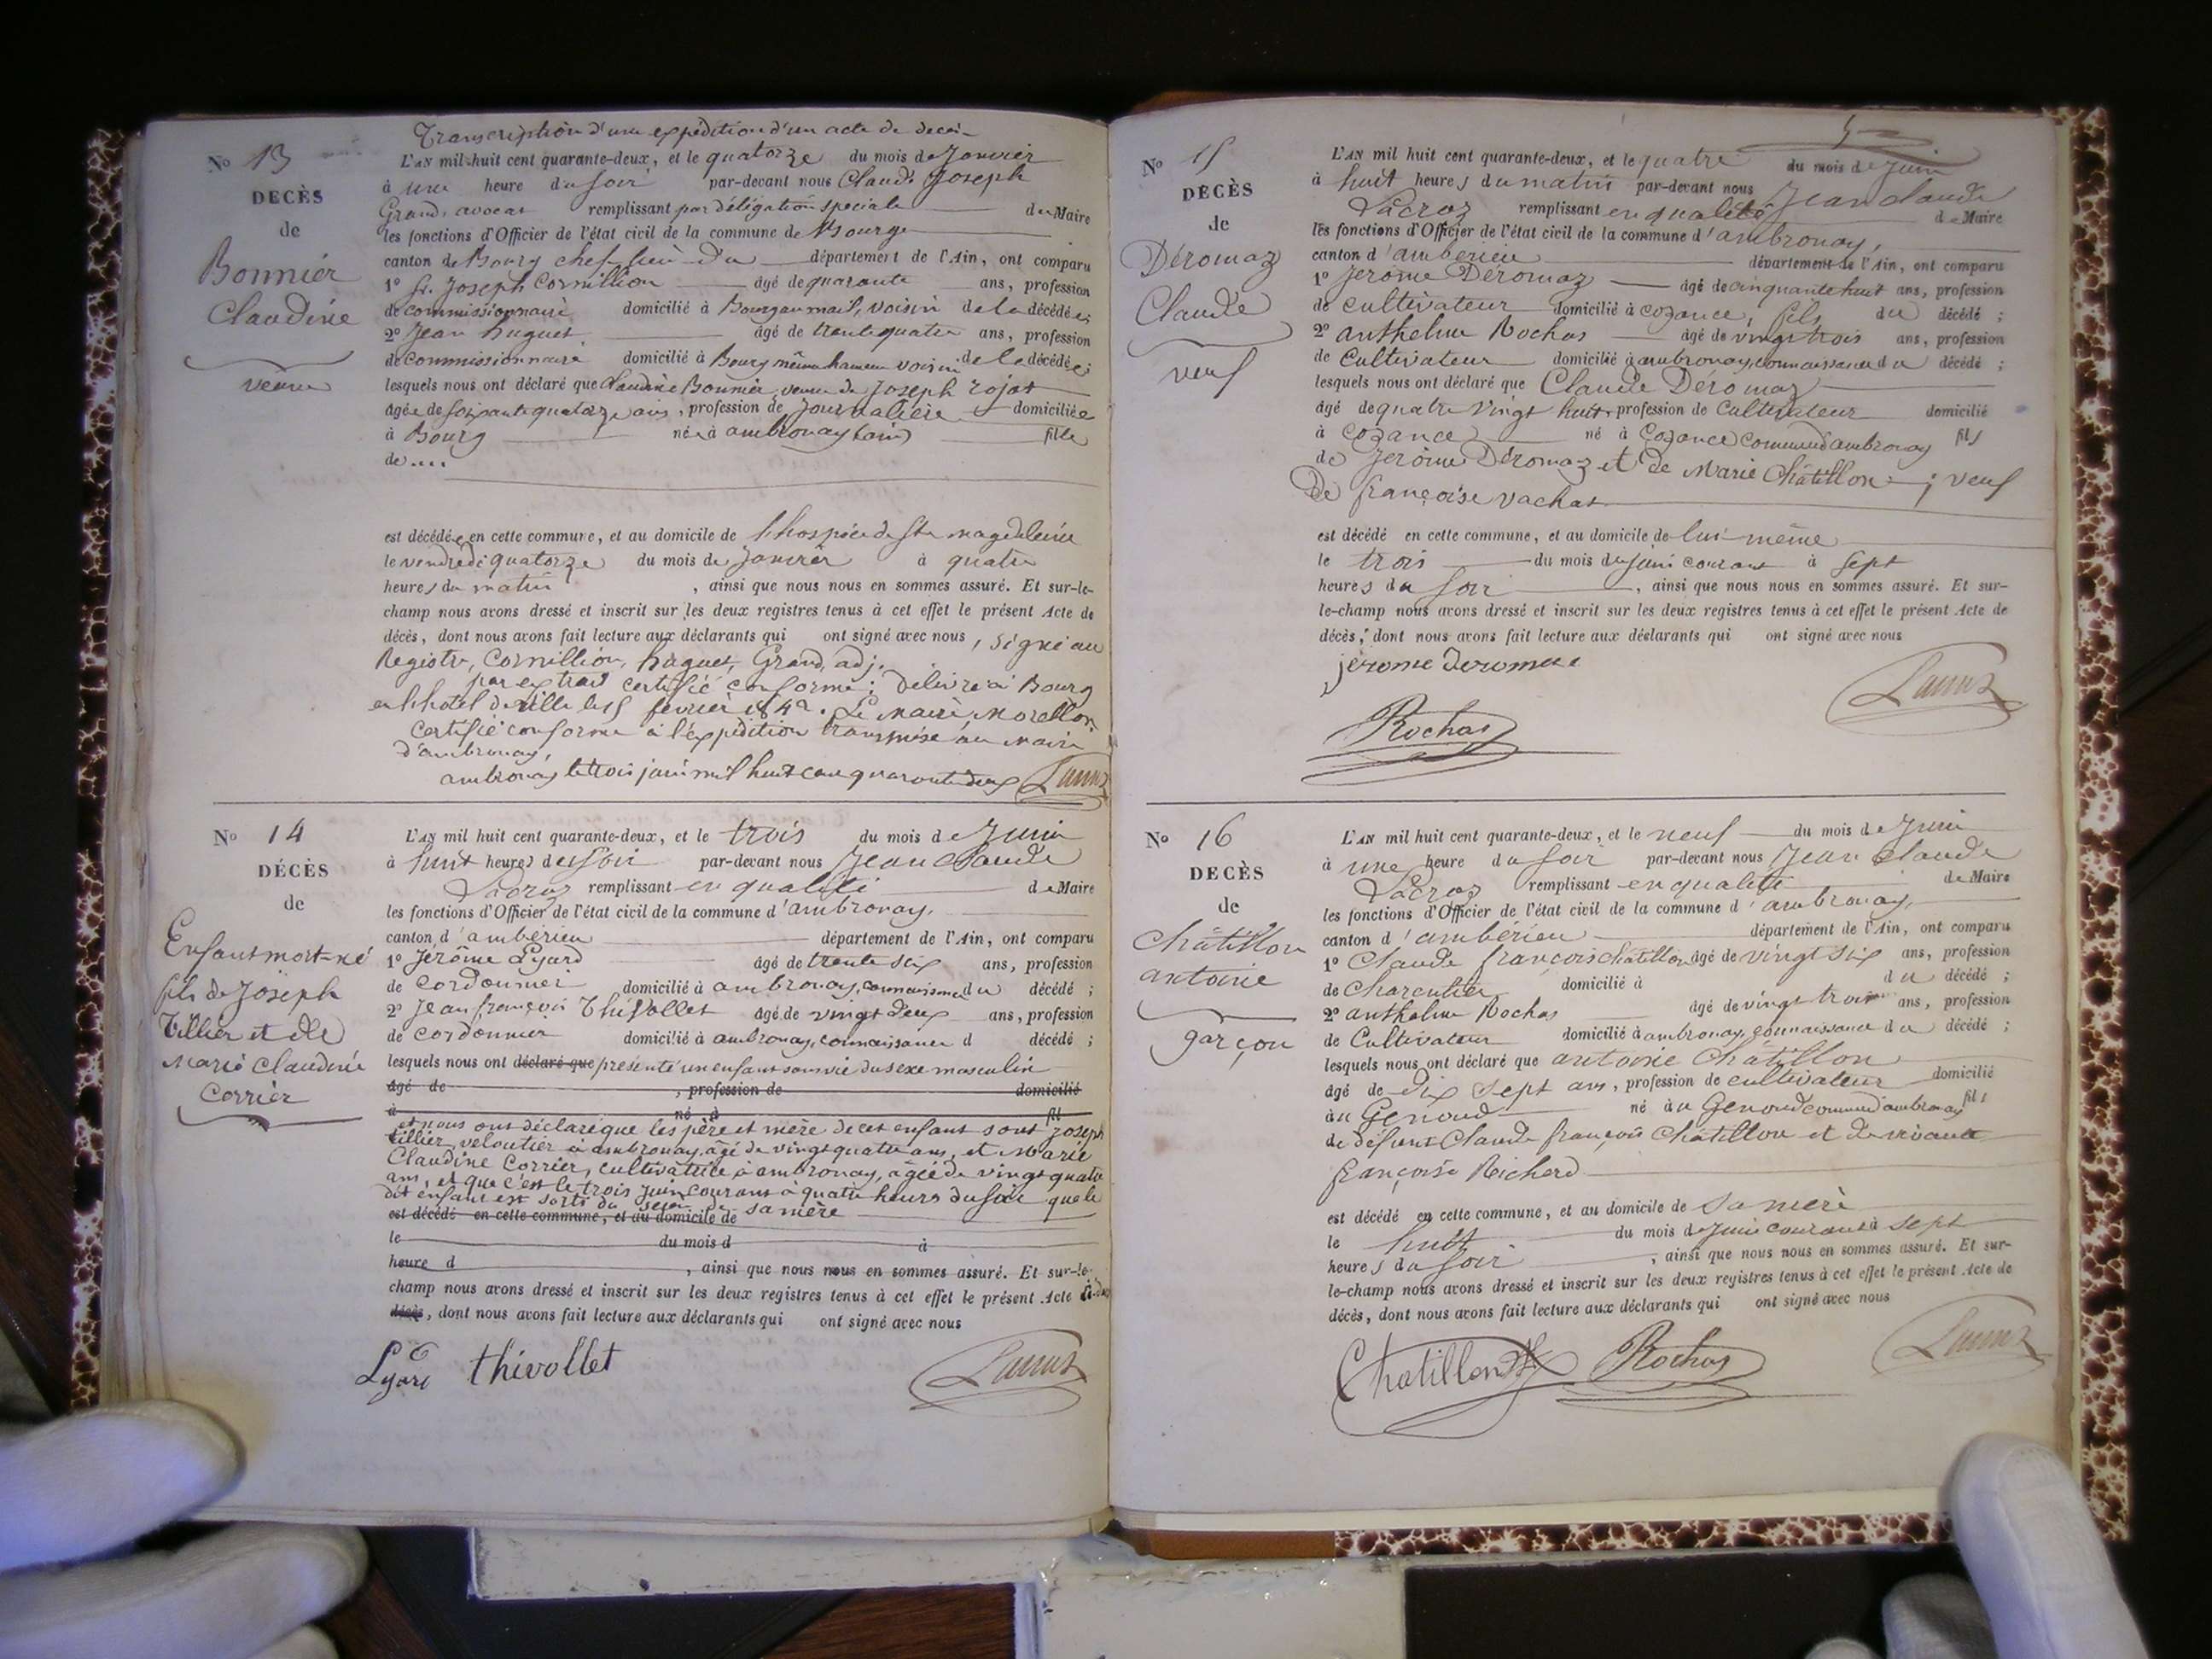 Transcription d'une expédition d'un acte de décès
No 13
DECÈS
de
Bonnier
Claudine
veuve
L'AN mil huit cent quarante-deux, et le quatorze du mois de Janvier
à une heure du soir par-devant nous Claude Joseph
Grand, avocat remplissant par délégation spéciale du Maire
les fonctions d'Officier de l'état civil de la commune de Bourg
canton de Bourg chef lieu du département de l'Ain, ont comparu
1o Sr. Joseph Cornillion âgé de quarante ans, profession
de commissionnaire domicilié à Bourg au mail, voisin de la décédée;
2o Jean huguet âgé de trente quatre ans, profession
de Commissionnaire domicilié à Bourg même hameau voisin de la décédée;
lesquels nous ont déclaré que Claudine Bonnier, veuve de Joseph rojat
âgée de soixante quatorze ans, profession de Journalière domiciliée
à Bourg née à ambronay (ain) fille
de ....
est décédée en cette commune, et au domicile de l'hospice de Ste magdeleine
le vendredi quatorze du mois de Janvier à quatre
heures du matin, ainsi que nous nous en sommes assuré. Et sur-le-
champ nous avons dressé et inscrit sur les deux registres tenus à cet effet le présent Acte de
décès, dont nous avons fait lecture aux déclarants qui ont signé avec nous, signé au
Registre, Cornillion, huguet, Grand, adj.
par extrait certifié conforme; délivré à Bourg
en l'hotel de ville le 15 février 1842. Le Maire Morellon
Certifié conforme à l'expédition transmise au Maire
d'ambronay,
ambronay le trois juin mil huit cent quarante deux
No 14
DÉCÈS
de
Enfant mort-né
fils de Joseph
Tillier et de
Marie Claudine
Corrier
L'AN mil huit cent quarante-deux, et le trois du mois de Juin
à huit heures du soir par-devant nous Jean Claude
Lacroz remplissant en qualité de Maire
les fonctions d'Officier de l'état civil de la commune d'ambronay,
canton d'ambérieu département de l'Ain, ont comparu
1o Jérôme Lyard âgé de trente six ans, profession
de Cordonnier domicilié à ambronay, connaissance du décédé;
2o Jean françois Thivollet âgé de vingt deux ans, profession
de cordonnier domicilié à ambronay, connaissance d décédé;
lesquels nous ont déclaré que présenté un enfant sans vie du sexe masculin
âgé de , profession de domicilié
à né à fil
et nous ont déclaré que les père et mère de cet enfant sont Joseph
tillier, veloutier à ambronay, âgé de vingt quatre ans, et Marie
Claudine Corrier, cultivatrice à ambronay, âgée de vingt quatre
ans, et que c'est le trois Juin courant à quatre heures du soir que le
dit enfant est sorti du sein de sa mère
est décédé en cette commune, et au domicile de
le du mois d à
heure d , ainsi que nous nous en sommes assuré. Et sur-le-
champ nous avons dressé et inscrit sur les deux registres tenus à cet effet le présent Acte
décès, dont nous avons fait lecture aux déclarants qui ont signé avec nous
Lyard thivollet
5
No 15
DÉCÈS
de
Déromaz
Claude
veuf
L'AN mil huit cent quarante-deux, et le quatre du mois de Juin
à huit heures du matin par-devant nous Jean Claude
Lacroz remplissant en qualité de Maire
les fonctions d'Officier de l'état civil de la commune d'ambronay,
canton d'ambérieu département de l'Ain, ont comparu
1o Jérôme Déromaz âgé de cinquante huit ans, profession
de cultivateur domicilié à cozance, fils du décédé;
2o anthelme Rochas âgé de vingt trois ans, profession
de Cultivateur domicilié à ambronay, connaissance du décédé;
lesquels nous ont déclaré que Claude Déromaz
âgé de quatre vingt huit profession de Cultivateur domicilié
à Cozance né à Cozance commune d'ambronay fils
de Jérôme Déromaz et de Marie Châtillon; veuf
De françoise vachat
est décédé en cette commune, et au domicile de lui-même
le trois du mois de juin courant à sept
heures du soir, ainsi que nous nous en sommes assuré. Et sur-
le-champ nous avons dressé et inscrit sur les deux registres tenus à cet effet le présent Acte de
décès, dont nous avons fait lecture aux déclarants qui ont signé avec nous
jérome deromas
Rochas
No 16
DECÈS
de
Châtillon
antoine
garçon
L'AN mil huit cent quarante-deux, et le neuf du mois de Juin
à une heure du soir par-devant nous Jean Claude
Lacroz remplissant en qualité de Maire
les fonctions d'Officier de l'état civil de la commune d'ambronay,
canton d'ambérieu département de l'Ain, ont comparu
1o Claude françois chatillon âgé de vingt six ans, profession
de Charcutier domicilié à du décédé;
2o anthelme Rochas âgé de vingt trois ans, profession
de Cultivateur domicilié à ambronay, connaissance du décédé;
lesquels nous ont déclaré que antoine Châtillon
âgé de dix sept ans, profession de cultivateur domicilié
au Genoud né au Genoud commune d'ambronay fils
de défunt Claude françois Châtillon et de vivante
françoise Reichard
est décédé en cette commune, et au domicile de sa mère
le huit du mois de juin courant à sept
heures du soir, ainsi que nous nous en sommes assuré. Et sur-
le-champ nous avons dressé et inscrit sur les deux registres tenus à cet effet le présent Acte de
décès, dont nous avons fait lecture aux déclarants qui ont signé avec nous
Chatillon Rochas